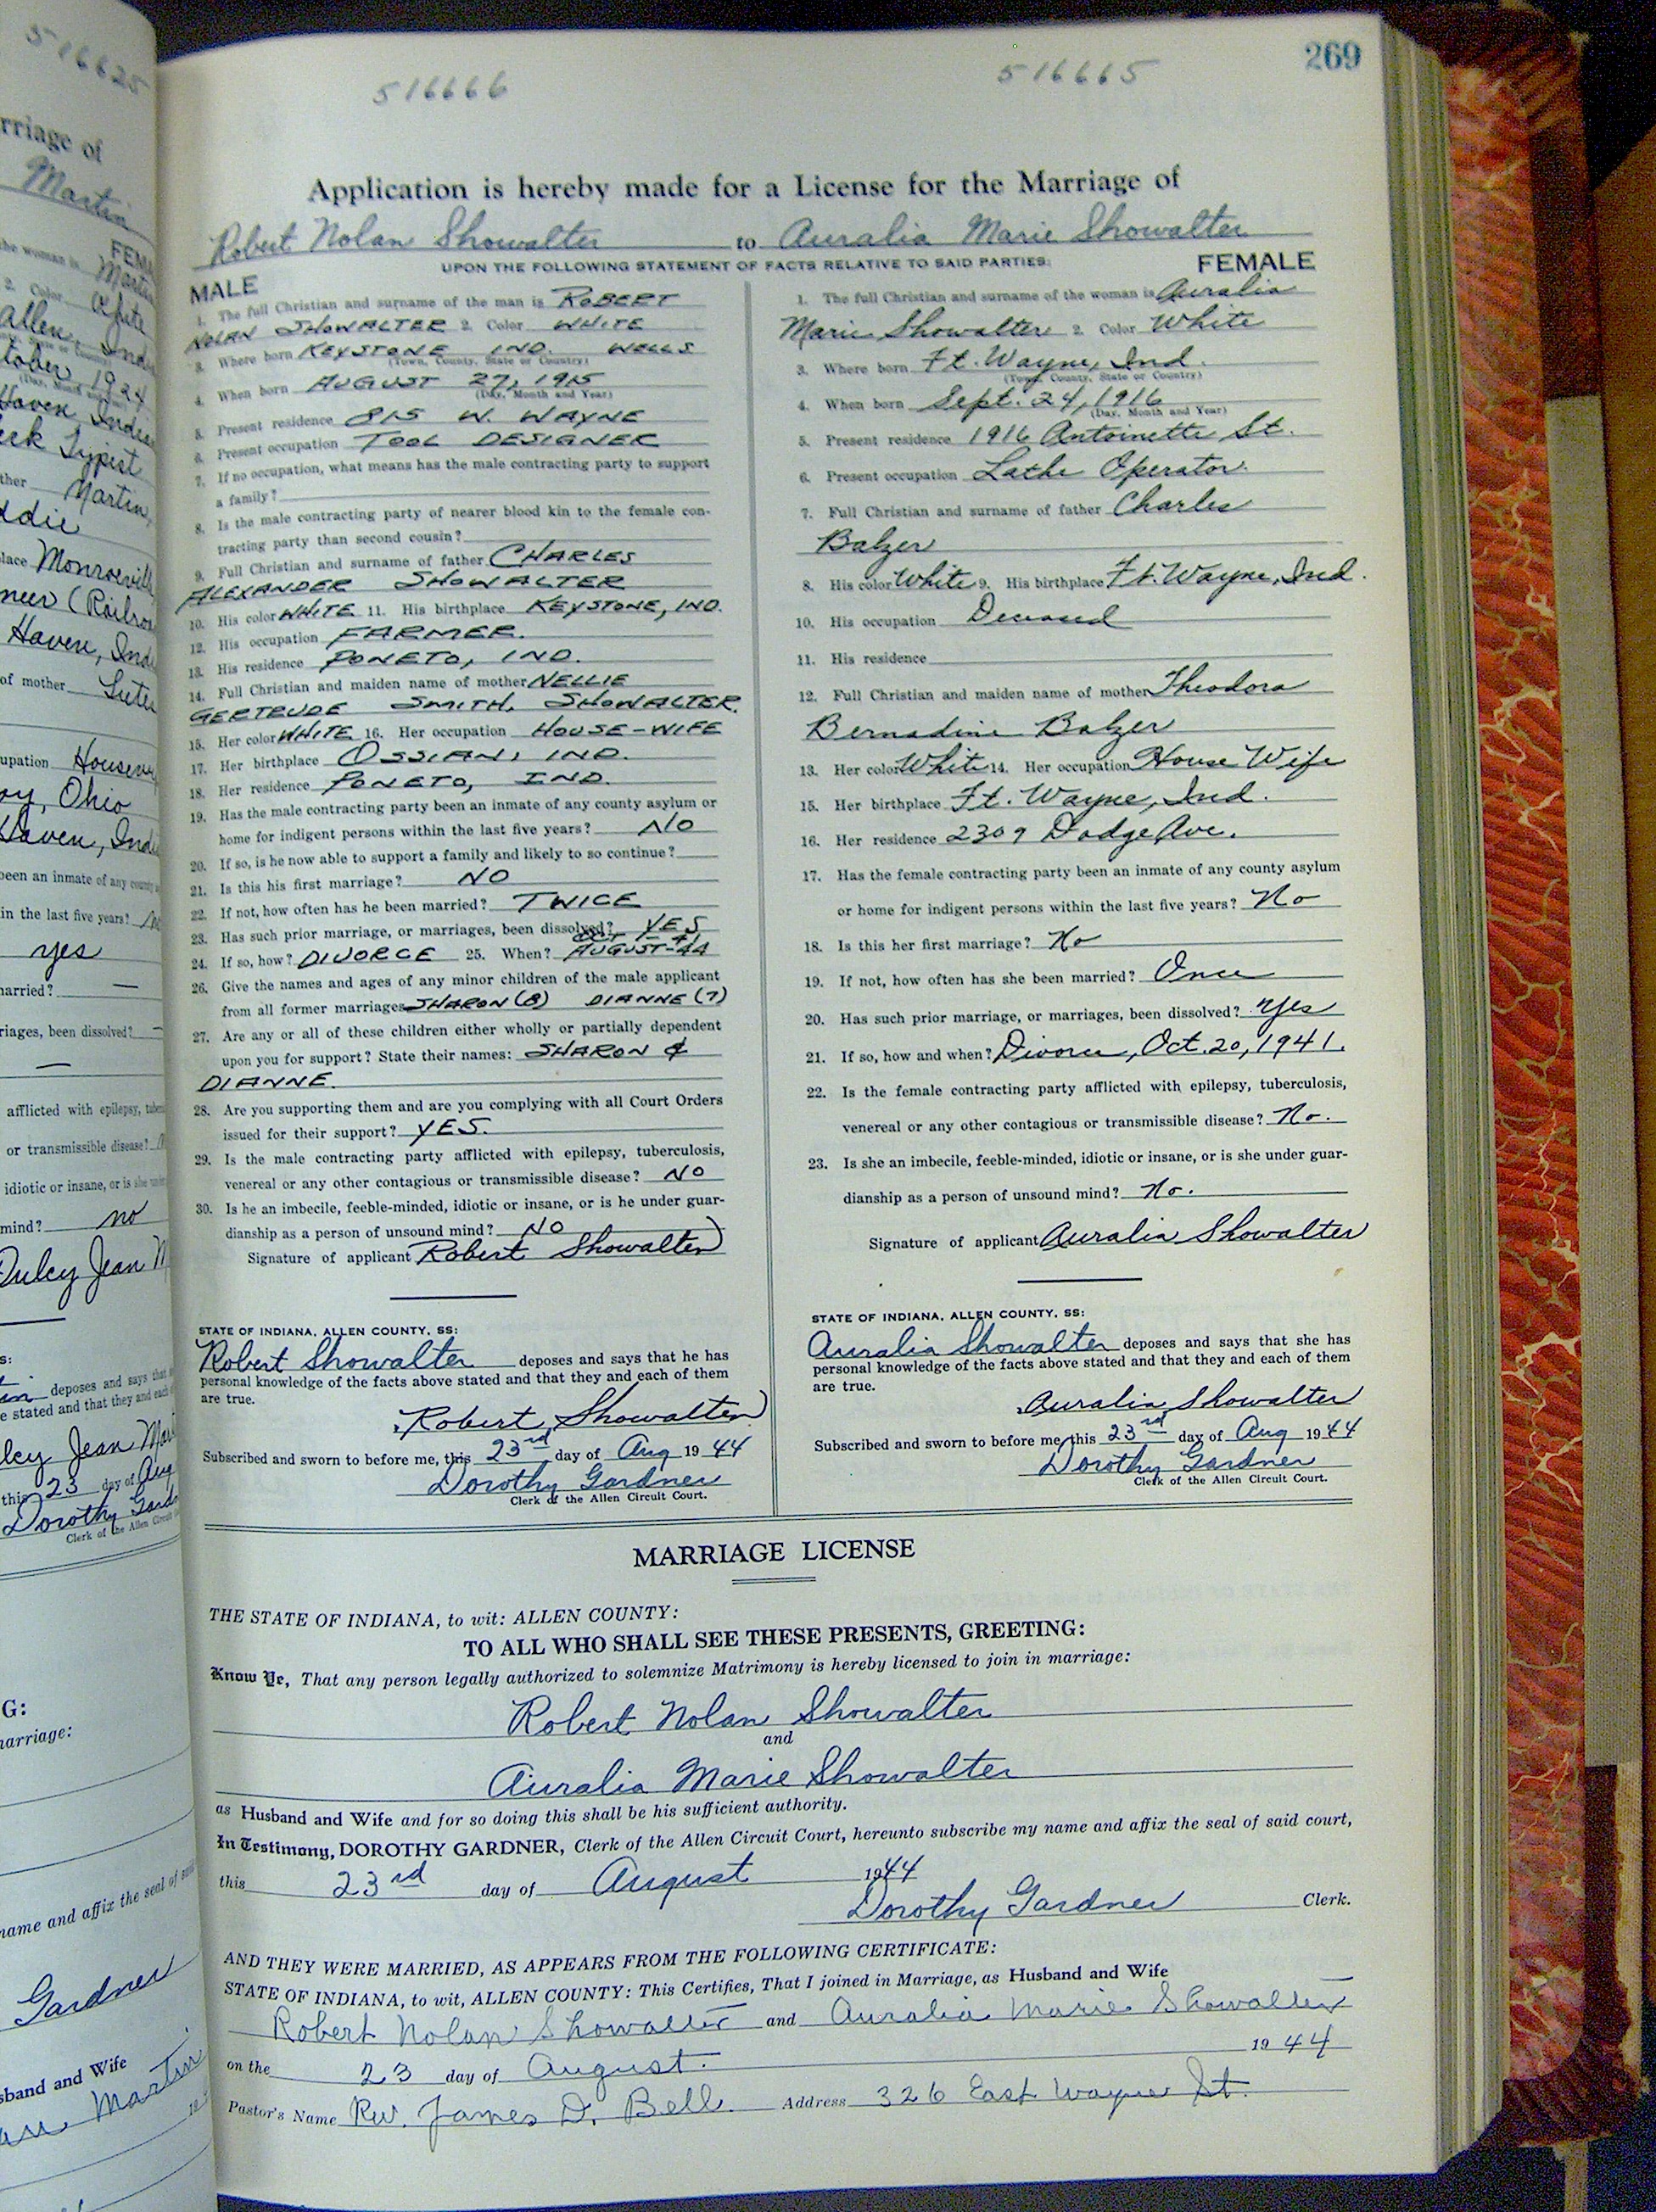 516625
rriage of
Martin
he woman is Martin
FEMA
2. Color White
Allen, Indi
tober 1924
Haven, Indi
erk Typist
ther Martin,
ddie
lace Monroevill
neer (Railroa
Haven, Ind
of mother
upation House
oy, Ohio
Haven, Indi
been an inmate of any county
in the last five years?
yes
married? —
rriages, been dissolved? —
—
afflicted with epilepsy,
or transmissible disease?
idiotic or insane, or is she
mind? no
Dulcy Jean M
deposes and says that
e stated and that they and each
lcy Jean Mar
this 23 day of Aug
Dorothy Gard
Clerk of the Allen Circuit
G:
marriage:
name and affix the seal of
Gardner
sband and Wife
Martin
269
516666 516665
Application is hereby made for a License for the Marriage of
Robert Nolan Showalter to Auralia Marie Showalter
UPON THE FOLLOWING STATEMENT OF FACTS RELATIVE TO SAID PARTIES:
MALE
1. The full Christian and surname of the man is ROBERT
NOLAN SHOWALTER 2. Color WHITE
3. Where born KEYSTONE IND. WELLS
(Town, County, State or Country)
4. When born AUGUST 27, 1915
(Day, Month and Year)
5. Present residence 815 W. WAYNE
6. Present occupation TOOL DESIGNER
7. If no occupation, what means has the male contracting party to support
a family?
8. Is the male contracting party of nearer blood kin to the female con-
tracting party than second cousin?
9. Full Christian and surname of father CHARLES
ALEXANDER SHOWALTER
10. His color WHITE 11. His birthplace KEYSTONE, IND.
12. His occupation FARMER.
13. His residence PONETO, IND.
14. Full Christian and maiden name of mother NELLIE
GERTRUDE SMITH, SHOWALTER.
15. Her color WHITE 16. Her occupation HOUSE-WIFE
17. Her birthplace OSSIAN, IND.
18. Her residence PONETO, IND.
19. Has the male contracting party been an inmate of any county asylum or
home for indigent persons within the last five years? NO
20. If so, is he now able to support a family and likely to so continue?
21. Is this his first marriage? NO
22. If not, how often has he been married? TWICE
23. Has such prior marriage, or marriages, been dissolved? YES
OCT - 41
24. If so, how? DIVORCE 25. When? AUGUST-44
26. Give the names and ages of any minor children of the male applicant
from all former marriages SHARON (8) DIANNE (7)
27. Are any or all of these children either wholly or partially dependent
upon you for support? State their names: SHARON &
DIANNE.
28. Are you supporting them and are you complying with all Court Orders
issued for their support? YES.
29. Is the male contracting party afflicted with epilepsy, tuberculosis,
venereal or any other contagious or transmissible disease? NO
30. Is he an imbecile, feeble-minded, idiotic or insane, or is he under guar-
dianship as a person of unsound mind? NO
Signature of applicant Robert Showalter
STATE OF INDIANA, ALLEN COUNTY, SS:
Robert Showalter deposes and says that he has
personal knowledge of the facts above stated and that they and each of them
are true.
Robert Showalter
Subscribed and sworn to before me, this 23rd day of Aug 1944
Dorothy Gardner
Clerk of the Allen Circuit Court.
FEMALE
1. The full Christian and surname of the woman is Auralia
Marie Showalter 2. Color White
3. Where born Ft. Wayne, Ind.
(Town, County, State or Country)
4. When born Sept. 24, 1916
(Day, Month and Year)
5. Present residence 1916 Antoinette St.
6. Present occupation Lathe Operator.
7. Full Christian and surname of father Charles
Balzer
8. His color White 9. His birthplace Ft. Wayne, Ind.
10. His occupation Deceased
11. His residence
12. Full Christian and maiden name of mother Theodora
Bernadine Balzer
13. Her color White 14. Her occupation House Wife
15. Her birthplace Ft. Wayne, Ind.
16. Her residence 2309 Dodge Ave.
17. Has the female contracting party been an inmate of any county asylum
or home for indigent persons within the last five years? No
18. Is this her first marriage? No
19. If not, how often has she been married? Once
20. Has such prior marriage, or marriages, been dissolved? Yes
21. If so, how and when? Divorce, Oct. 20, 1941.
22. Is the female contracting party afflicted with epilepsy, tuberculosis,
venereal or any other contagious or transmissible disease? No.
23. Is she an imbecile, feeble-minded, idiotic or insane, or is she under guar-
dianship as a person of unsound mind? No.
Signature of applicant Auralia Showalter
STATE OF INDIANA, ALLEN COUNTY, SS:
Auralia Showalter deposes and says that she has
personal knowledge of the facts above stated and that they and each of them
are true.
Auralia Showalter
Subscribed and sworn to before me, this 23rd day of Aug 1944
Dorothy Gardner
Clerk of the Allen Circuit Court.
MARRIAGE LICENSE
THE STATE OF INDIANA, to wit: ALLEN COUNTY:
TO ALL WHO SHALL SEE THESE PRESENTS, GREETING:
Know Ye, That any person legally authorized to solemnize Matrimony is hereby licensed to join in marriage:
Robert Nolan Showalter
and
Auralia Marie Showalter
as Husband and Wife and for so doing this shall be his sufficient authority.
In Testimony, DOROTHY GARDNER, Clerk of the Allen Circuit Court, hereunto subscribe my name and affix the seal of said court,
this 23rd day of August 1944
Dorothy Gardner Clerk.
AND THEY WERE MARRIED, AS APPEARS FROM THE FOLLOWING CERTIFICATE:
STATE OF INDIANA, to wit, ALLEN COUNTY: This Certifies, That I joined in Marriage, as Husband and Wife
Robert Nolan Showalter and Auralia Marie Showalter
on the 23 day of August. 1944
Pastor's Name Rev. James D. Bell. Address 326 East Wayne St.